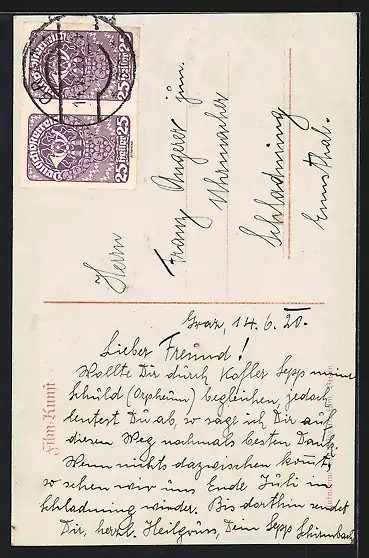 Deutschösterreich
25 Heller 25
Deutschösterreich
25 Heller 25
Herrn
Franz Angerer jun.
Uhrmacher
Schladming
Ennsthal.
Graz, 14.6.20.
Lieber Freund!
Wollte Dir durch Kofler Sepp meine
Schuld (Orpheum) begleichen, jedoch
leutest Du ab, so sage ich Dir auf
diesen Weg nochmals besten Dank.
Wenn nichts dazwischen kommt
so sehen wir uns Ende Juli in
Schladming wieder. Bis dorthin sendet
Dir, herzl. Heilgruss, Dein Sepp
Film-Kunst